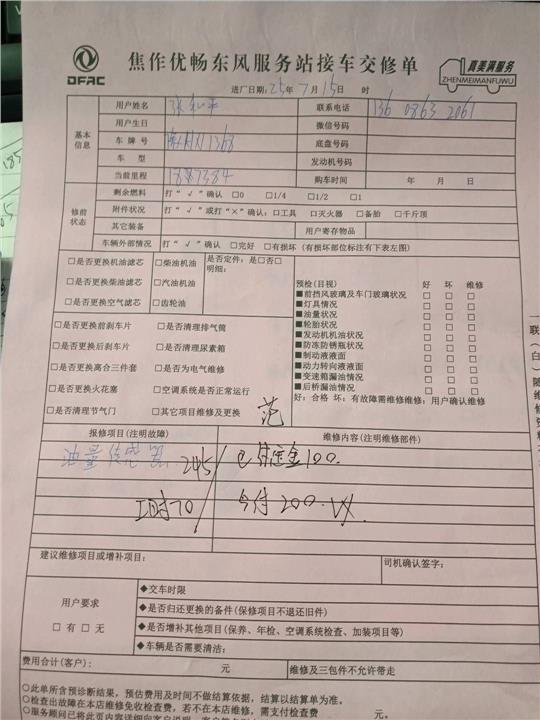 DFAC
焦作优畅东风服务站接车交修单
真美满服务
ZHENMEIMANFUWU
进厂日期:25年7月15日 时
基本信息
用户姓名
联系电话 136 0863 2061
用户生日
微信号码
车牌号
底盘号码
车 型
发动机号码
当前里程
购车时间 年 月 日
修前状态
剩余燃料 打“√”确认 □0 □1/4 □1/2 □1
附件状况 打“√”或打“×”确认:□工具 □灭火器 □备胎 □千斤顶
其它装备
用户寄存物品
车辆外部情况 打“√”确认 □完好 □有损坏(有损坏部位标注有下表左图)
□是否更换机油滤芯 □柴油机油 是否定件:是□否□
□是否更换柴油滤芯 □汽油机油 明细:
□是否更换空气滤芯 □齿轮油
□是否更换前刹车片 □是否清理排气筒
□是否更换后刹车片 □是否清理尿素箱
□是否更换离合三件套 □是否为电气维修
□是否更换火花塞 □空调系统是否正常运行
□是否清理节气门 □其它项目维修及更换
范
预检(目视) 好 坏 维修
■前挡风玻璃及车门玻璃状况 □ □ □
■灯具情况 □ □ □
■油量状况 □ □ □
■轮胎状况 □ □ □
■发动机机油状况 □ □ □
■防冻防锈瓶状况 □ □ □
■制动液液面 □ □ □
■动力转向液液面 □ □ □
■变速箱漏油情况 □ □ □
■后桥漏油情况 □ □ □
好:合格 坏:有故障需维修维修:用户确认维修
报修项目(注明故障)
维修内容(注明维修部件)
油量 245 已付定金100.
工时70 今付200.VX.
建议维修项目或增补项目:
司机确认签字:
用户要求
□有 □无
◆交车时限
◆是否归还更换的备件(保修项目不退还旧件)
◆是否增补其他项目(保养、年检、空调系统检查、加装项目等)
◆车辆是否需要清洁:
费用合计(客户): 元
维修及三包件不允许带走
○此单所含预诊断结果,预估费用及时间不做结算依据,结算以结算单为准。
○检查出故障在本店维修免收检查费,若不在本店维修,需支付检查费 元。
一联(白)